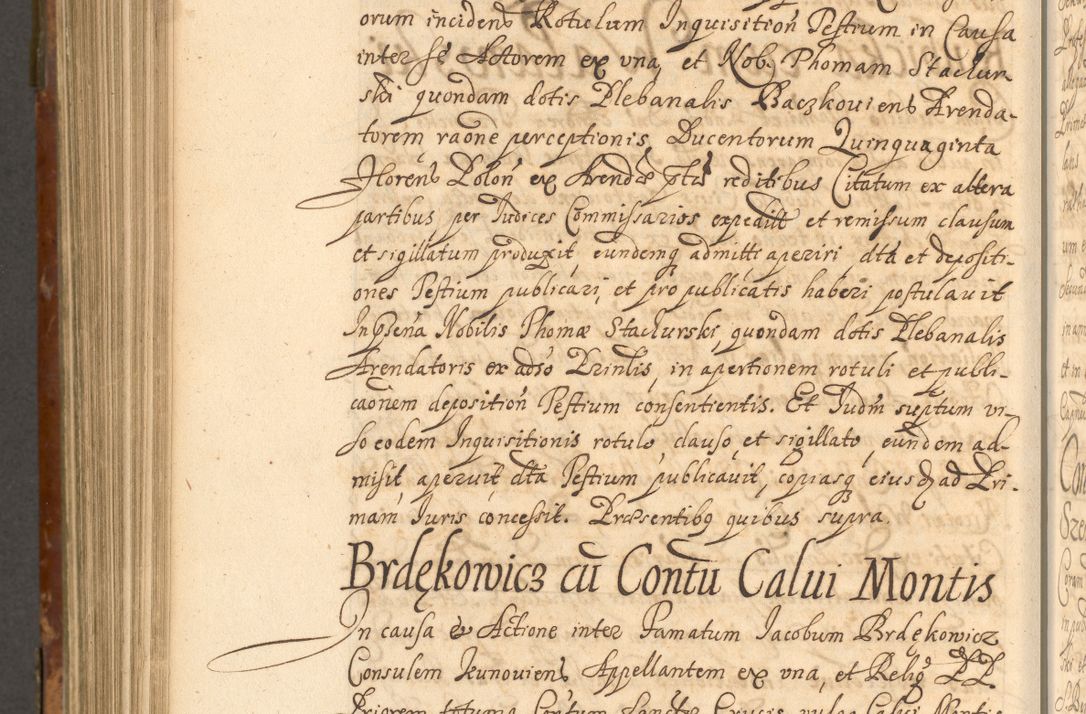 orum incidens Rotulum Inquisition Testium in Causa
inter se Actorem ex una, et Nob. Thomam Stachur-
ski quondam dotis Plebanalis Raczkoviens Arenda-
torem raone perceptionis, Ducentorum Quinquaginta
Florens Polon ex Arendæ ptis reditibus Citatum ex altera
partibus per Iudices Commissarios expedit et remissum clausum
et sigillatum produxit, eundemq admitti aperiri dta et depositi-
ones Testium publicari, et pro publicatis haberi postulavit
In psena Nobilis Thomæ Stachurski, quondam dotis Plebanalis
Arendatoris ex adso Prinlis, in apertionem rotuli et publi-
caonem deposition Testium consentientis. Et Iudm suptum vi-
so eodem Inquisitionis rotulo clauso, et sigillato, eundem ad-
misit aperuit, dta Testium publicavit, copiasq eius ad Pri-
mam Iuris concessit. Præsentibq quibus supra.
Brdękowicz cu Contu Calui Montis
In causa & Actione inter Famatum Iacobum Brdękowicz
Consulem Kunoviens Appellantem ex una, et Relig PP
Priorem totumq Contum Sanctæ Crucis, vulgo Calvi Montis